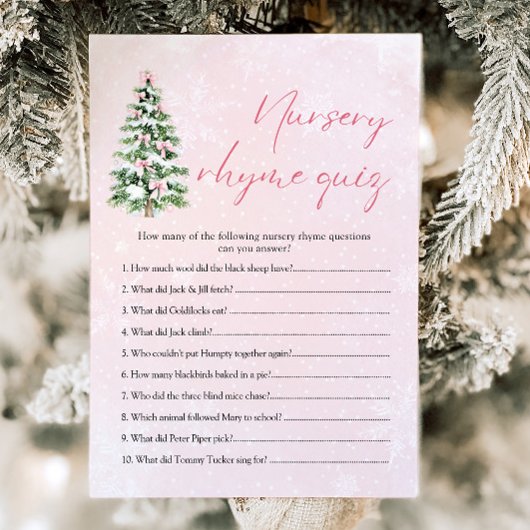 Nursery
rhyme quiz
How many of the following nursery rhyme questions
can you answer?
1. How much wool did the black sheep have?
2. What did Jack & Jill fetch?
3. What did Goldilocks eat?
4. What did Jack climb?
5. Who couldn't put Humpty together again?
6. How many blackbirds baked in a pie?
7. Who did the three blind mice chase?
8. Which animal followed Mary to school?
9. What did Peter Piper pick?
10. What did Tommy Tucker sing for?